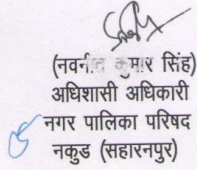 (नवनीत कुमार सिंह)
अधिशासी अधिकारी
नगर पालिका परिषद
नकुड (सहारनपुर)